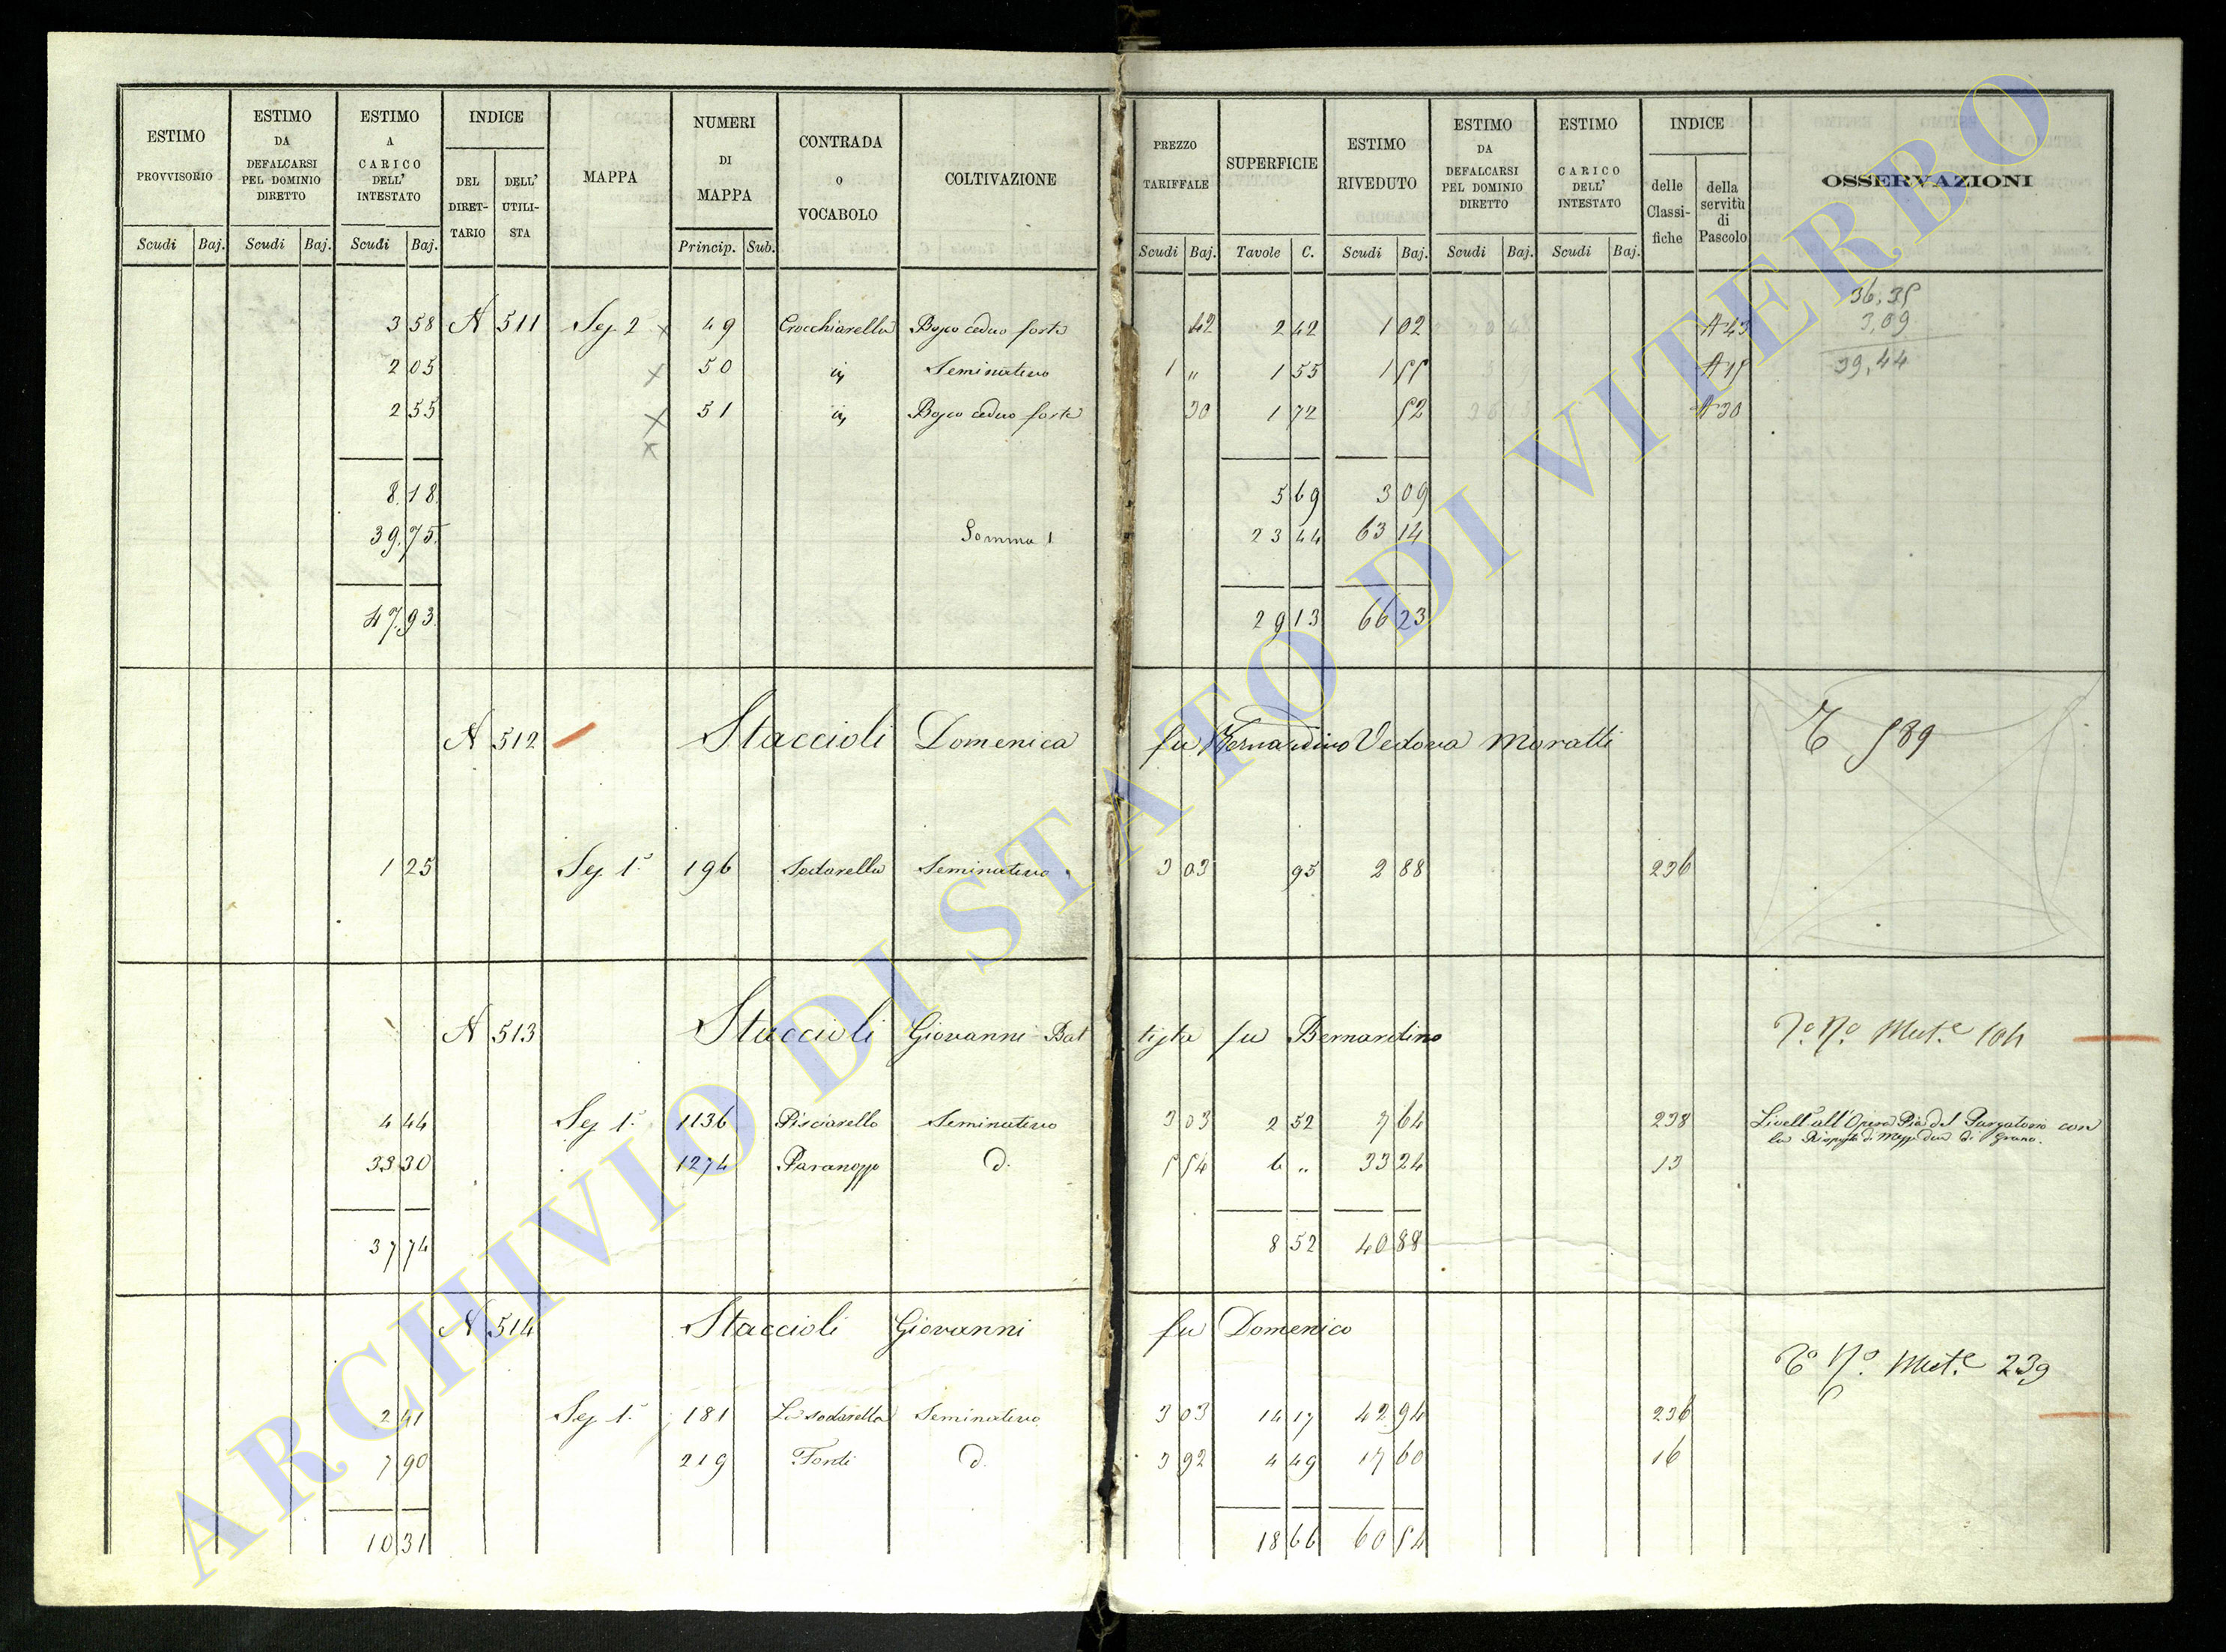 ESTIMO PROVVISORIO | ESTIMO DA DEFALCARSI PEL DOMINIO DIRETTO | ESTIMO A CARICO DELL' INTESTATO | INDICE DEL DIRET-TARIO | DELL' UTILI-STA | MAPPA | NUMERI DI MAPPA | CONTRADA O VOCABOLO | COLTIVAZIONE | PREZZO TARIFFALE | SUPERFICIE | ESTIMO RIVEDUTO | ESTIMO DA DEFALCARSI PEL DOMINIO DIRETTO | ESTIMO CARICO DELL' INTESTATO | INDICE delle Classi-fiche | della servitù di Pascolo | OSSERVAZIONI
Scudi Baj. | Scudi Baj. | Scudi Baj. | Princip. Sub. | Scudi Baj. | Tavole C. | Scudi Baj. | Scudi Baj. | Scudi Baj.
36,35
3 58 A 511 Sez 2 x 49 Crocchiarella Bosco ceduo forte 42 2 42 1 02 A 43 3,09
2 05 x 50 Seminativo 1 " 1 55 1 55 39,44
2 55 x 51 Bosco ceduo forte 30 1 72 52 A 30
x
8 18 5 69 3 09
39 75 Somma 23 44 63 14
47 93 29 13 66 23
A 512 Staccioli Domenica fu Bernardino Vedova Moratti 589
1 25 Sez 1ª 196 Sodarella Seminativo 3 03 95 2 88 236
A 513 Staccioli Giovanni Bat tista fu Bernardino
4 44 Sez 1ª 1136 Pisciarello Seminativo 3 03 2 52 7 64 238 Livell. all'Opera Pia del Purgatorio con
33 30 1274 Paranozzo d. 5 54 6 " 33 24 13
37 74 8 52 40 88
A 514 Staccioli Giovanni fu Domenico
Mut.e 239
2 41 Sez 1ª 181 La sodarella Seminativo 3 03 14 17 42 94 236
7 90 219 Fondi d. 3 92 4 49 17 60 16
10 31 18 66 60 54
ARCHIVIO DI STATO DI VITERBO